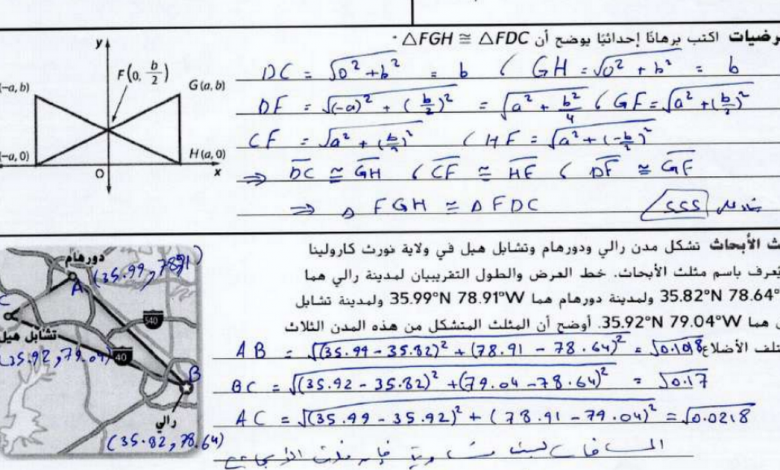 رضيات اكتب برهانًا إحداثيًا يوضح أن △FGH ≅ △FDC ·
y
F(0, b/2)
(−a, b)
G(a, b)
(−a, 0)
H(a, 0)
O
x
DC = √0² + b² = b ، GH = √0² + b² = b
DF = √(-a)² + (b/2)² = √a² + b²/4 ، GF = √a² + (b/2)²
CF = √a² + (b/2)² ، HF = √a² + (-b/2)²
⇒ DC ≅ GH ، CF ≅ HF ، DF ≅ GF
⇒ △ FGH ≅ △ FDC SSS
ث الأبحاث تشكل مدن رالي ودورهام وتشابل هيل في ولاية نورث كارولينا
يُعرف باسم مثلث الأبحاث. خط العرض والطول التقريبيان لمدينة رالي هما
35.82°N 78.64° ولمدينة دورهام هما 35.99°N 78.91°W ولمدينة تشابل
هما 35.92°N 79.04°W. أوضح أن المثلث المتشكل من هذه المدن الثلاث
تلف الأضلاع
دورهام
A (35.99, 78.91)
C
تشابل هيل
(35.92, 79.04)
540
40
B
رالي
(35.82, 78.64)
AB = √(35.99 - 35.82)² + (78.91 - 78.64)² = √0.108
BC = √(35.92 - 35.82)² + (79.04 - 78.64)² = √0.17
AC = √(35.99 - 35.92)² + (78.91 - 79.04)² = √0.0218
المسافات ليست متساوية